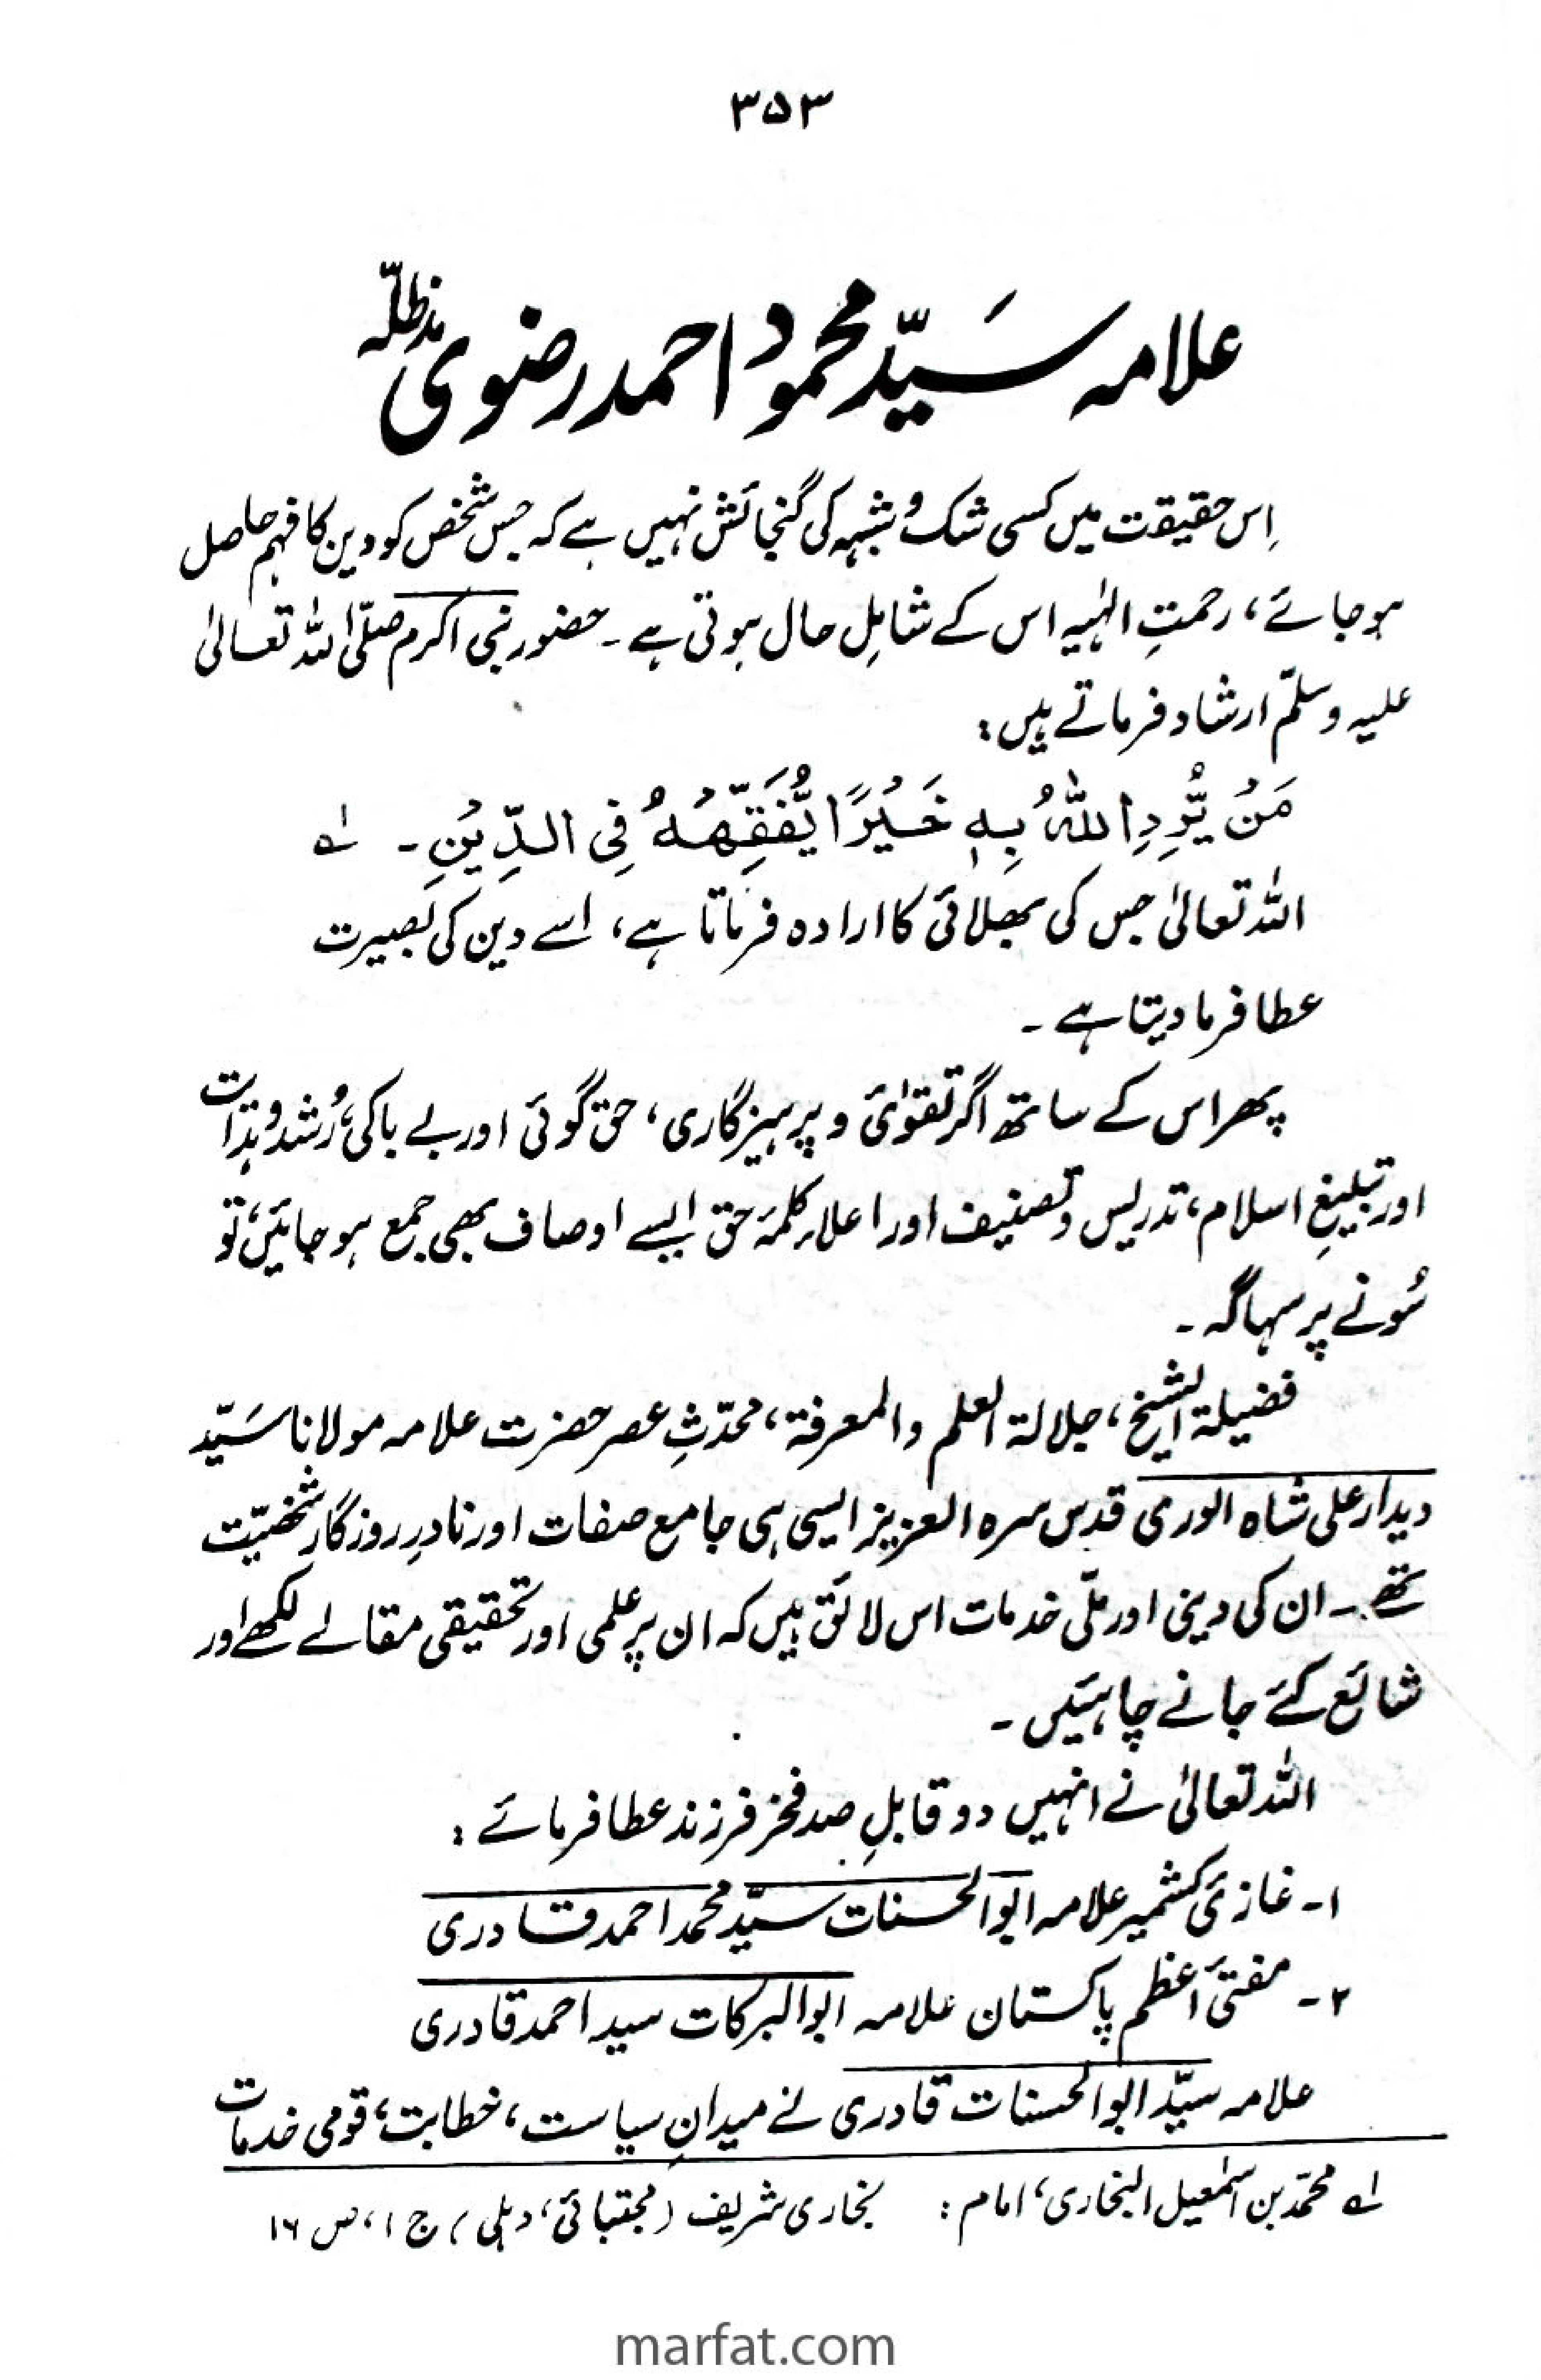 ۳۵۳
علامہ سَیّد محمود احمد رضوی مدظلّہ
اِس حقیقت میں کسی شک و شبہہ کی گنجائش نہیں ہے کہ جس شخص کو دین کا فہم حاصل
ہو جائے، رحمتِ الٰہیہ اس کے شاملِ حال ہوتی ہے۔ حضور نبی اکرم صلّی اللہ تعالیٰ
علیہ وسلّم ارشاد فرماتے ہیں:
مَنْ یُّرِدِ اللّٰهُ بِهٖ خَیْرًا یُّفَقِّهْهُ فِی الدِّیْنِ۔ لہ
اللہ تعالیٰ جس کی بھلائی کا ارادہ فرماتا ہے، اسے دین کی بصیرت
عطا فرما دیتا ہے۔
پھر اس کے ساتھ اگر تقوٰی و پرہیزگاری، حق گوئی اور بے باکی، رُشد و ہدایت
اور تبلیغِ اسلام، تدریس و تصنیف اور اعلاء کلمۂ حق ایسے اوصاف بھی جمع ہو جائیں، تو
سُونے پر سہاگہ۔
فضیلۃ الشیخ، جلالۃ العلم والمعرفۃ، محدّثِ عصر حضرت علامہ مولانا سَیّد
دیدار علی شاہ الوری قدس سرہ العزیز ایسی ہی جامع صفات اور نادرِ روزگار شخصیّت
تھے۔ ان کی دینی اور ملّی خدمات اس لائق ہیں کہ ان پر علمی اور تحقیقی مقالے لکھے اور
شائع کئے جانے چاہئیں۔
اللہ تعالیٰ نے انہیں دو قابلِ صد فخر فرزند عطا فرمائے:
۱۔ غازیٔ کشمیر علامہ ابوالحسنات سیّد محمد احمد قادری
۲۔ مفتیٔ اعظم پاکستان علامہ ابوالبرکات سید احمد قادری
علامہ سیّد ابوالحسنات قادری نے میدانِ سیاست، خطابت، قومی خدمات
لہ محمّد بن اسمٰعیل البخاری، امام: بخاری شریف (مجتبائی، دہلی) ج ۱، ص ۱۶
marfat.com